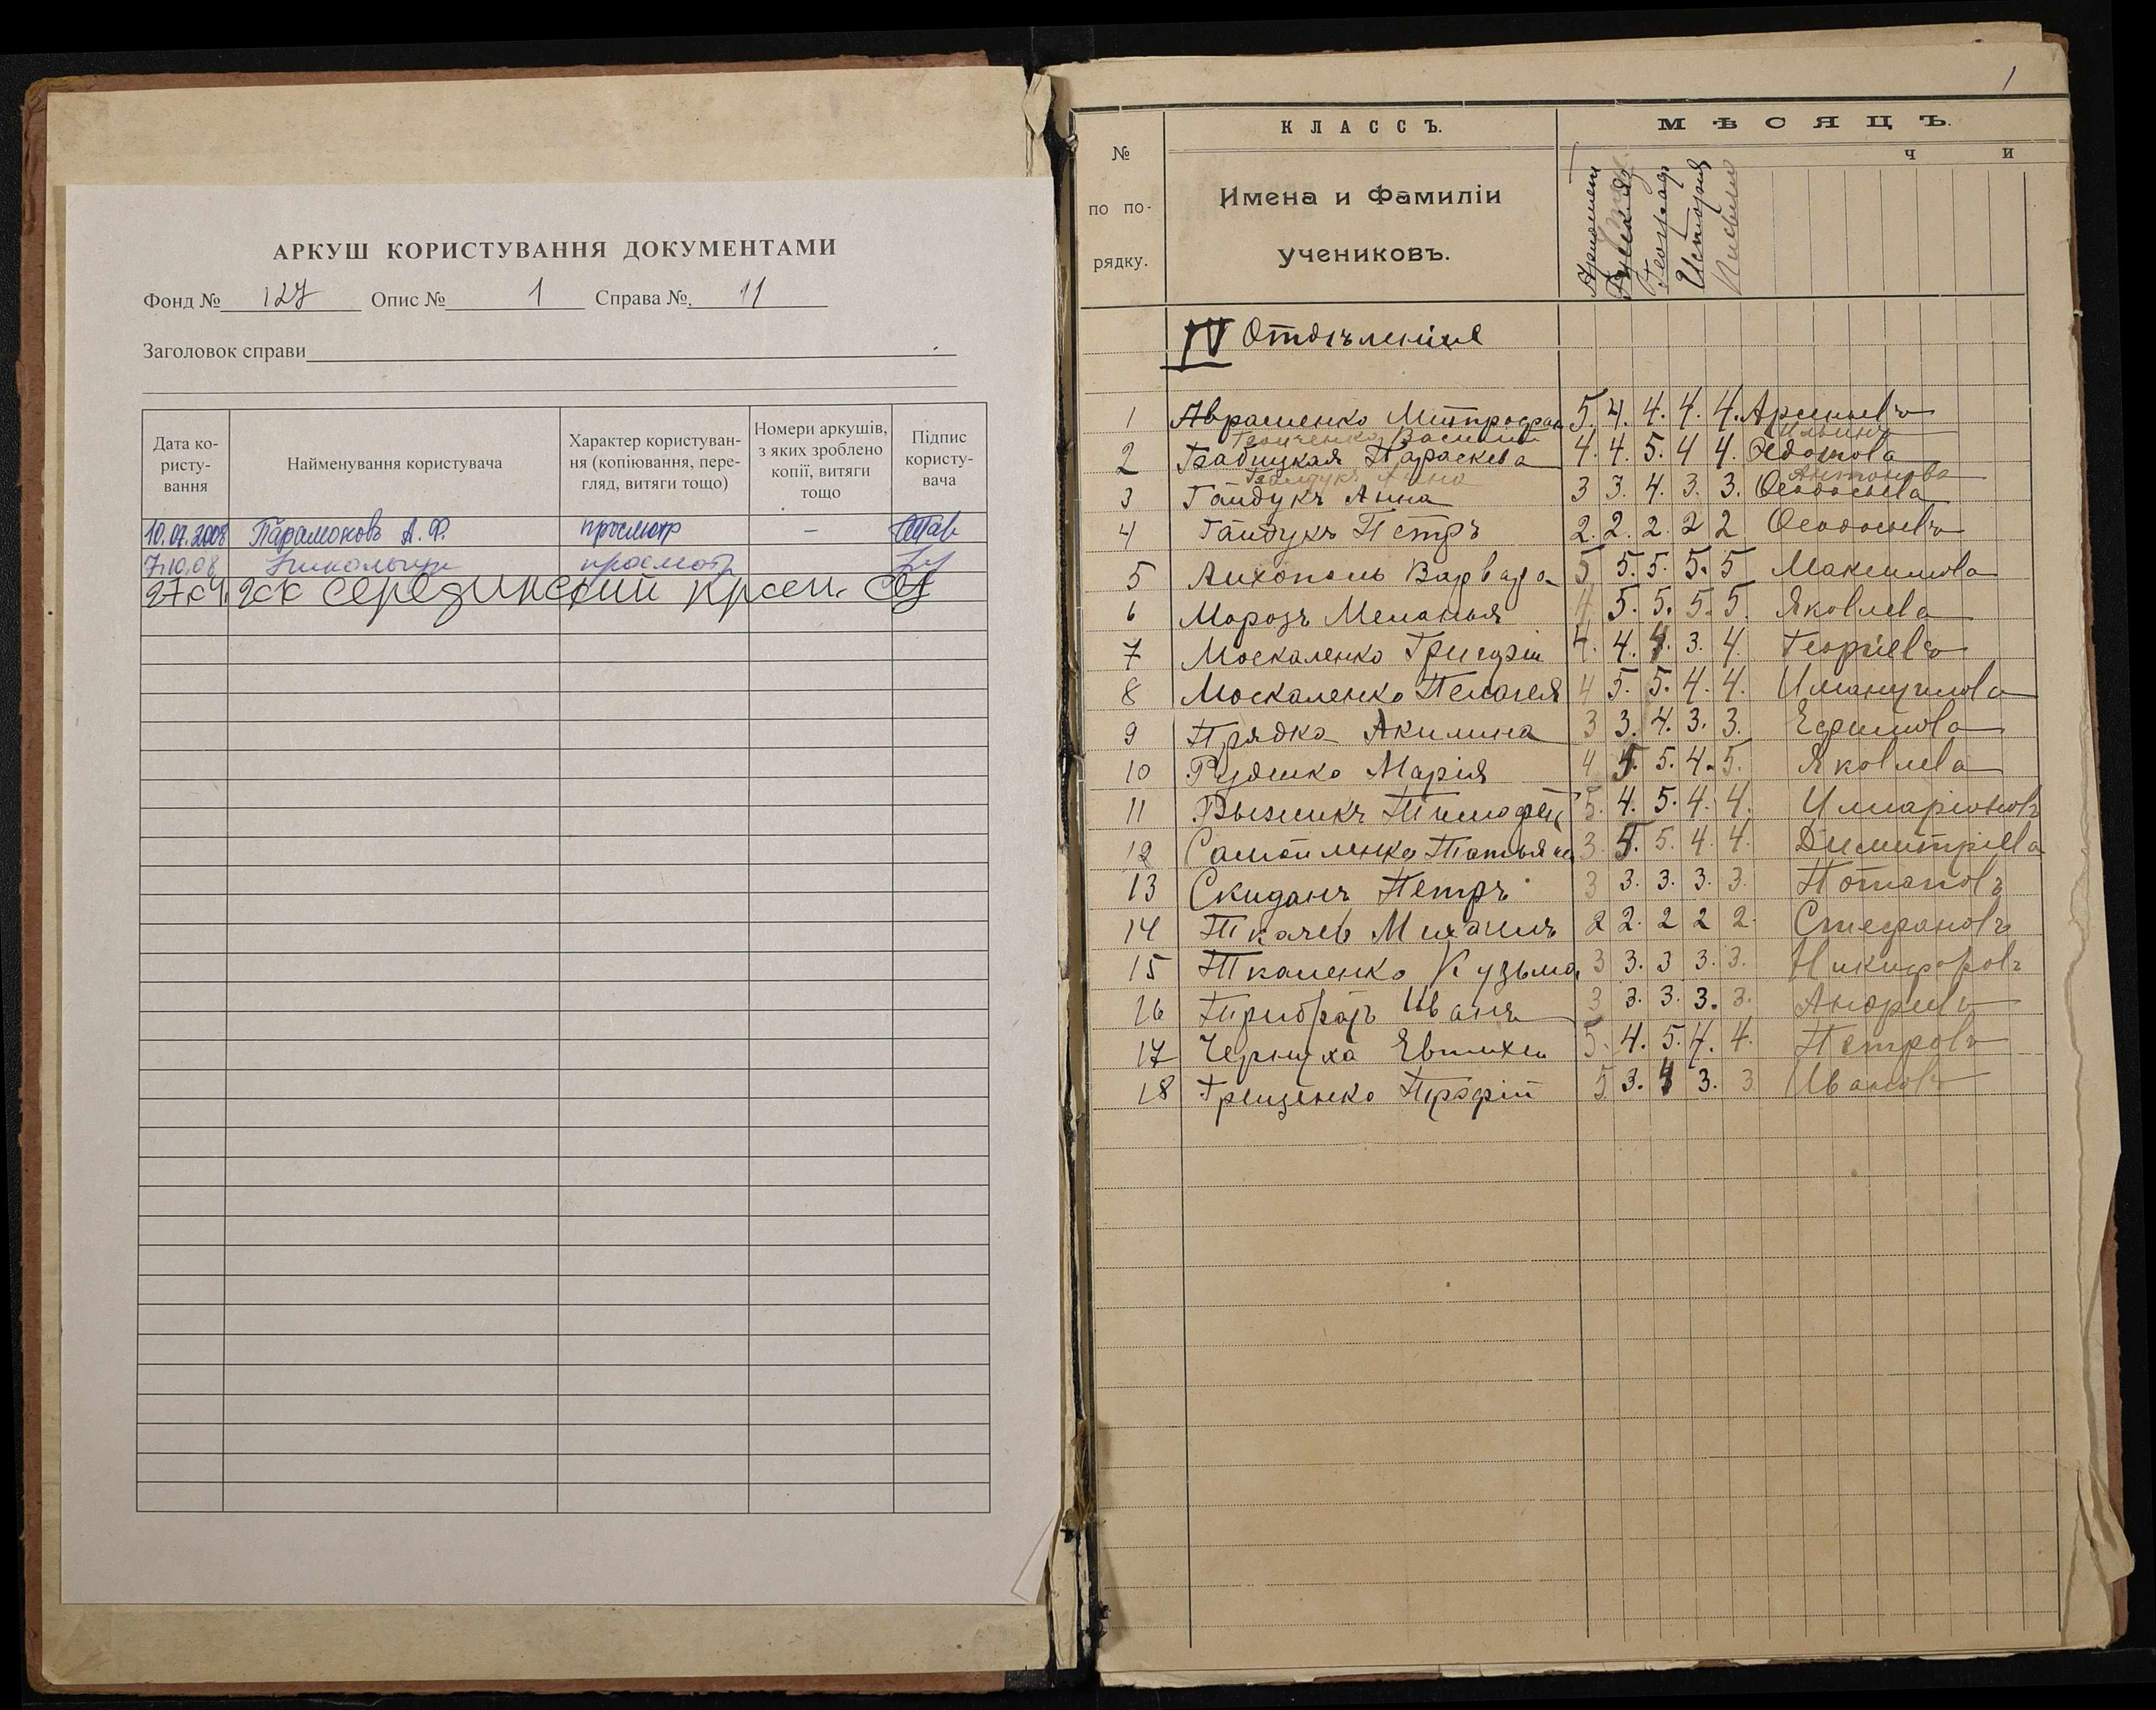 АРКУШ КОРИСТУВАННЯ ДОКУМЕНТАМИ
Фонд № 127 Опис № 1 Справа № 11
Заголовок справи
Дата ко-
ристу-
вання
Найменування користувача
Характер користуван-
ня (копіювання, пере-
гляд, витяги тощо)
Номери аркушів,
з яких зроблено
копії, витяги
тощо
Підпис
користу-
вача
10.07.2008 Парамоновъ А. Ф. просмотр –
7.10.08 просмотр
1
№
по по-
рядку.
КЛАССЪ.
Имена и Фамиліи
учениковъ.
МѢСЯЦЪ.
Ч И
Географ
Исторія
IV Отдѣленіе
1 Авраменко Митрофан 5. 4. 4. 4. 4. Арсеньевъ
Василий Ильинъ
2 Бабицкая Параскева 4. 4. 5. 4 4. Федотова
Гайдукъ Анна Антонова
3 Гайдукъ Анна 3 3. 4. 3. 3. Феодосьева
4 Гайдукъ Петръ 2. 2. 2. 2 2 Феодосьевъ
5 Лихополь Варвара 5 5. 5. 5. 5 Максимова
6 Морозъ Меланья 4 5. 5. 5. 5. Яковлева
7 Москаленко Григорій 4. 4. 4. 3. 4. Георгіевъ
8 Москаленко Пелагея 4 5. 5. 4. 4. Имануилова
9 Прядка Акилина 3 3. 4. 3. 3. Ефимова
10 Руденко Марія 4 5. 5. 4. 5. Яковлева
11 Рыжикъ Тимофей 5. 4. 5. 4. 4. Иларіоновъ
12 Самойленко Татьяна 3. 5. 5. 4. 4. Димитріева
13 Скиданъ Петръ 3 3. 3. 3. 3. Потаповъ
14 Ткачев Михаилъ 2 2. 2 2 2. Стефановъ
15 Ткаченко Кузьма 3 3. 3 3. 3. Никифоровъ
16 Иванъ 3 3. 3. 3. 3. Андреевъ
17 Чернуха Евтихій 5. 4. 5. 4. 4. Петровъ
18 Грищенко 5 3. 4 3. 3 Ивановъ